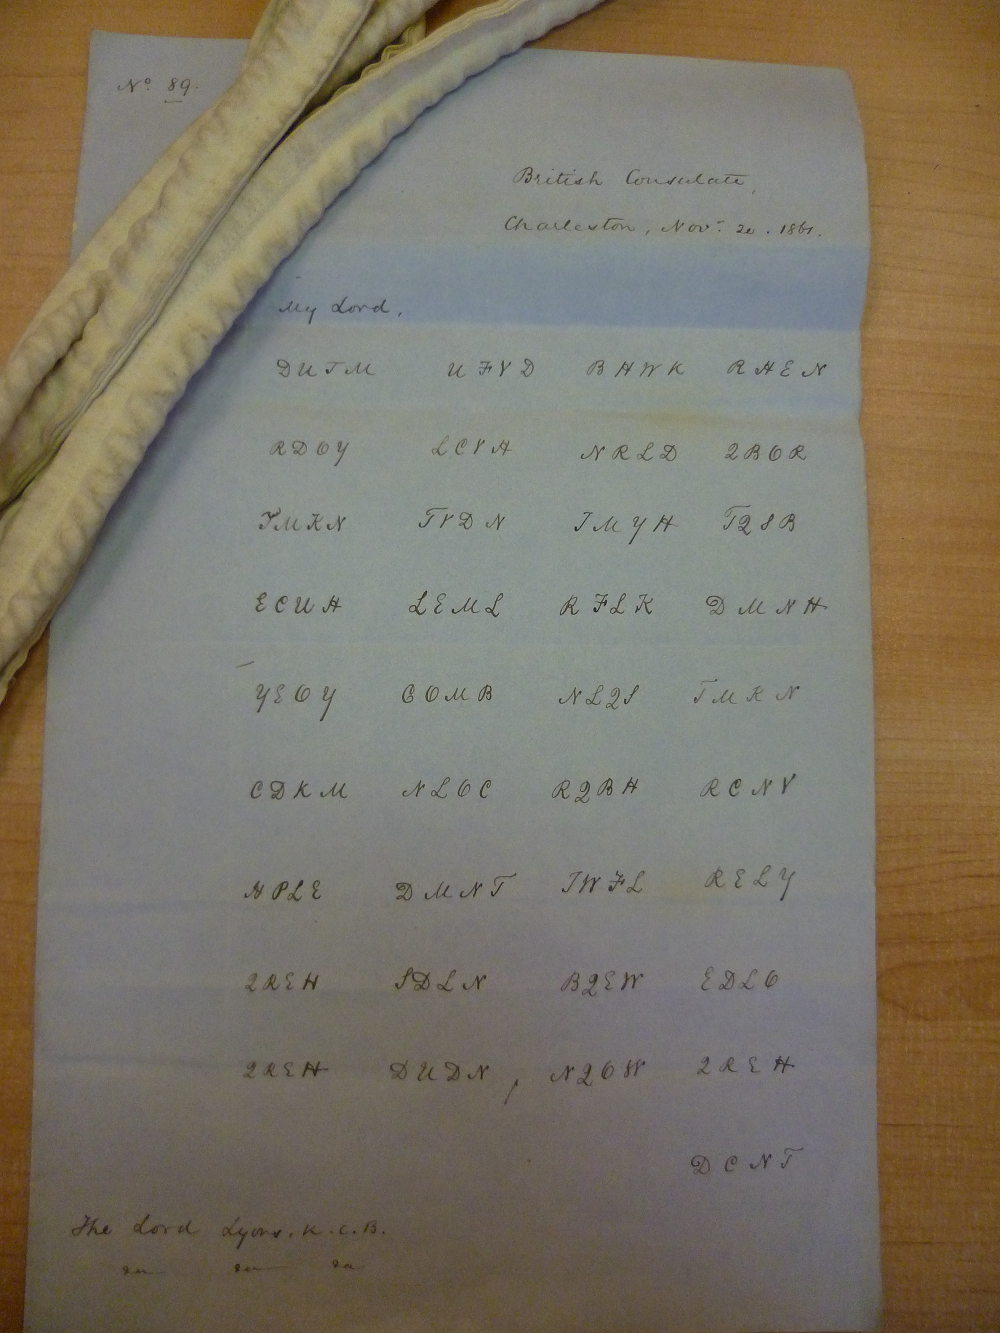 No. 89.
British Consulate,
Charleston, Nov. 20. 1861.
My Lord,
DUTM UFVD BHWK RHEN
RDOY LCVH NRLD QBOR
TMKN TVDN IMYH TQSB
ECUH LEML RFLK DMNH
YEOY COMB NLQS TMKN
CDKM NLOC RQBH RCNV
HPLE DMNT IWFL RELY
QREH SDLN BQEW EDLO
QREH DUDN, NQOW QREH
DCNT
The Lord Lyons, K.C.B.